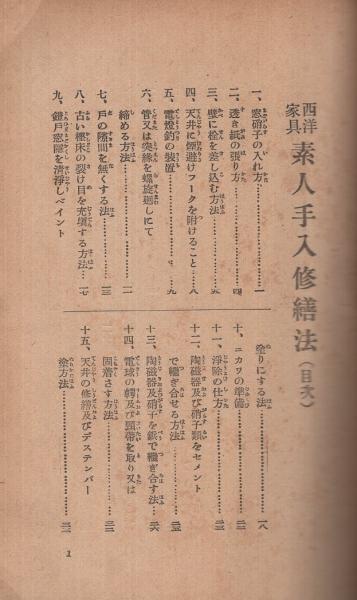 西洋家具 素人手入修繕法(目次)
一、窓硝子の入れ方……一
二、透き紙の張り方……四
三、壁に栓を差し込む方法……六
四、天井に煙避けフークを附けること……八
五、電燈釣の装置……九
六、管又は突縁を螺旋廻しにて
締める方法……一一
七、戸の隙間を無くする方法……一三
八、古い樫床の裂け目を充塡する方法……一七
九、鎧戸窓隠を清淨しペイント
塗りにする法……一八
十、ニカワの準備……二一
十一、淨除の仕方……二二
十二、陶磁器及び硝子類をセメント
で継ぎ合せる方法……二五
十三、陶磁器及硝子を鋲で継ぎ合す法……二六
十四、電球の鍔及び頸帶を取り又は
固着さす方法……三二
十五、天井の修繕及びデステンパー
塗方法……三三
1